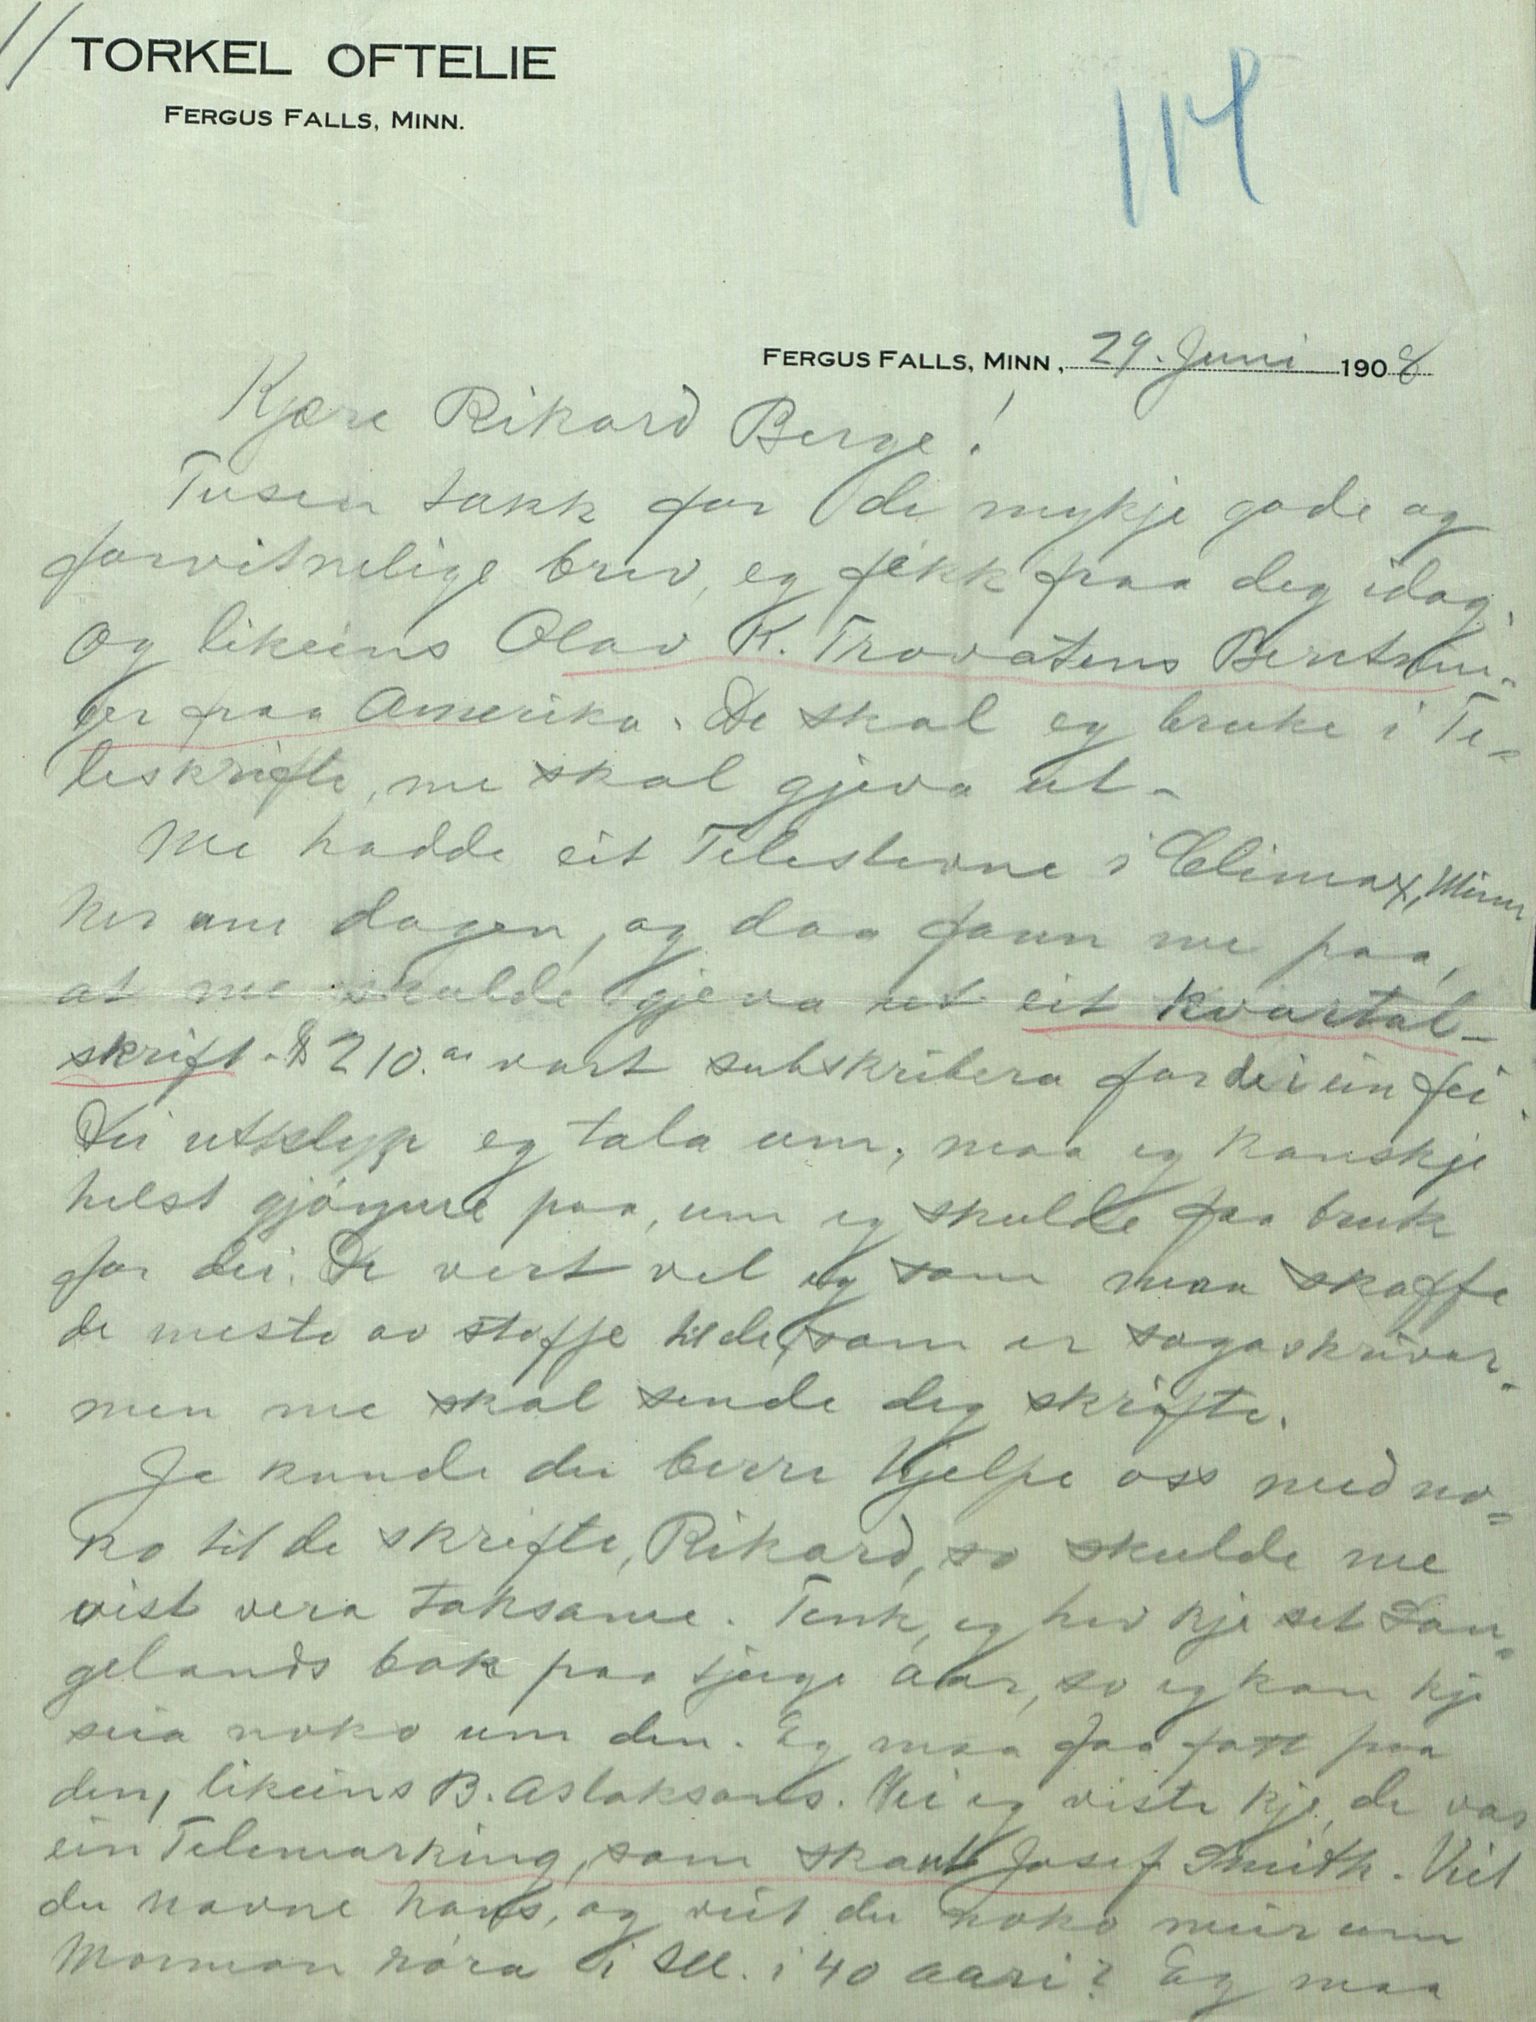 TORKEL OFTELIE
FERGUS FALLS, MINN.
114
FERGUS FALLS, MINN., 29. Juni 1908
Kjære Rikard Berge!
Tusen takk for de mykje gode og
forvitnelige brev, eg fekk fraa deg idag.
Og likeeins Olav K. Trovatens Beretnin-
ger fraa Amerika. De skal eg bruke i Te-
leskrifte, me skal gjeva ut.
Me hadde eit Telestevne i Climax, Minn
her um dagen, og daa fann me paa,
at me skulde gjeva ut eit kvartal-
skrift. $210.00 vart subskribera for dei ein fei.
Dei utklyp eg tala um, maa eg kanskje
helst gjøyme paa, um eg skulde faa bruk
for dei. De vert vel eg som maa skaffe
de meste av stoffe til de, som er sogaskrivar-
men me skal sende deg skrifte.
Ja kunde du berre hjelpe oss med no-
ko til de skrifte, Rikard, so skulde me
vist vera taksame. Tenk, eg hev kje set Lan-
gelands bok paa tjuge aar, so eg kan kje
seia noko um den. Eg maa faa fatt paa
den, likeeins B. Aslaksons. Nei eg viste kje, de var
ein Telemarking, som skaut Josef Smith. Veit
du navne hans, og veit du noko meir um
Mormon røra i Ill. i 40 aari? Eg maa